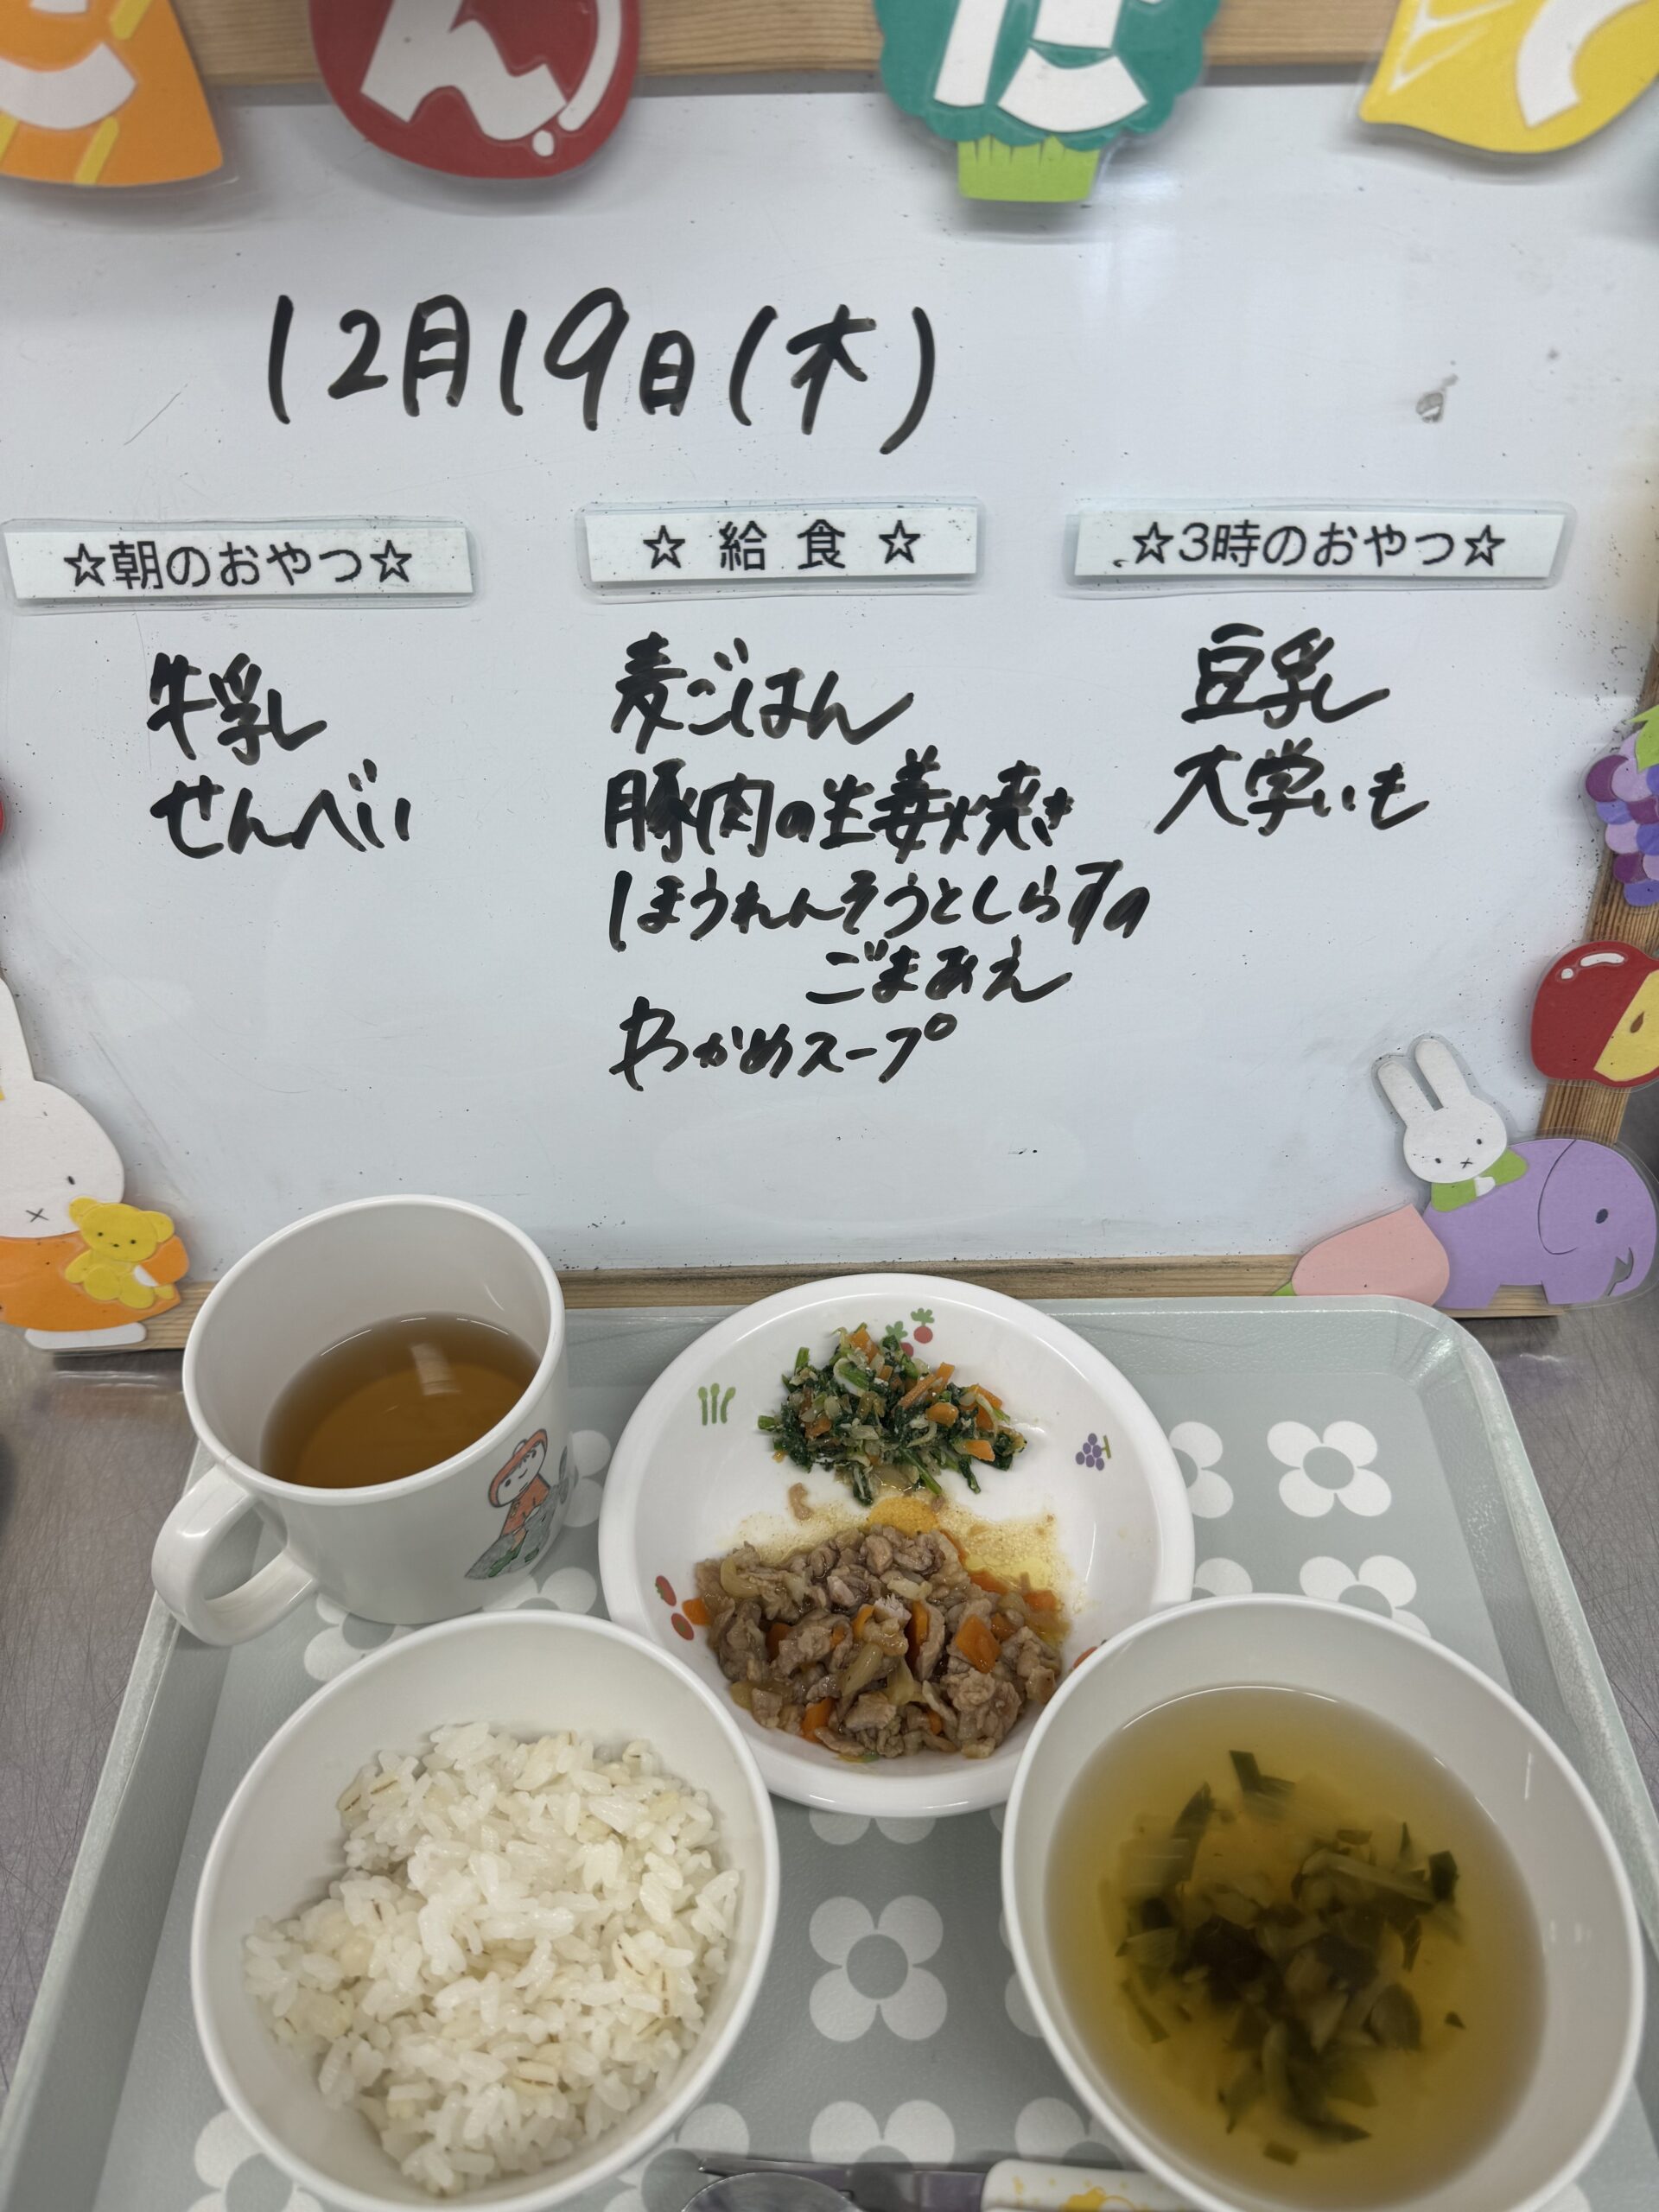 こんだて
12月19日(木)
☆朝のおやつ☆
牛乳
せんべい
☆給食☆
麦ごはん
豚肉の生姜焼き
ほうれんそうとしらすの
ごまあえ
わかめスープ
☆3時のおやつ☆
豆乳
大学いも